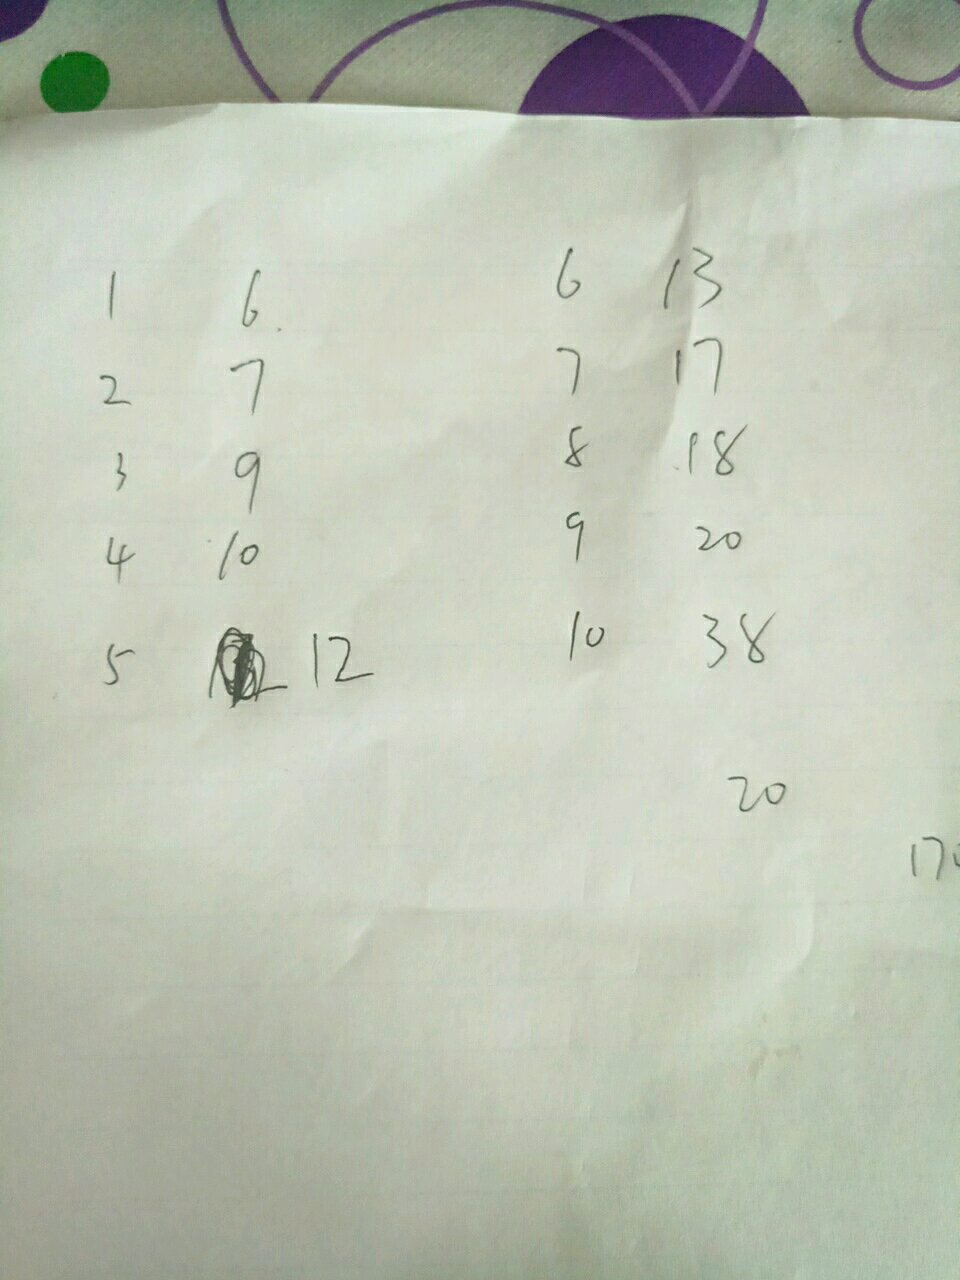 1 6 6 13
2 7 7 17
3 9 8 18
4 10 9 20
5 12 10 38
20